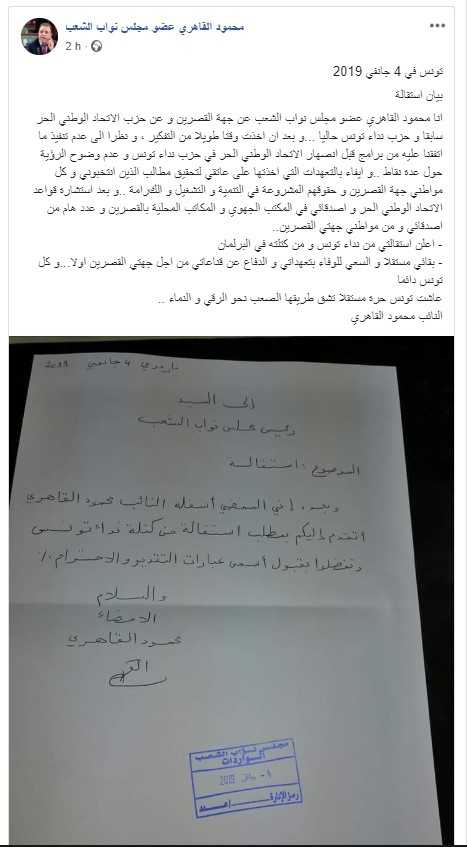 محمود القاهري عضو مجلس نواب الشعب
2 h
تونس في 4 جانفي 2019
بيان استقالة
انا محمود القاهري عضو مجلس نواب الشعب عن جهة القصرين و عن حزب الاتحاد الوطني الحر
سابقا و حزب نداء تونس حاليا ...و بعد ان اخذت وقتا طويلا من التفكير ، و نظرا الى عدم تنفيذ ما
اتفقنا عليه من برامج قبل انصهار الاتحاد الوطني الحر في حزب نداء تونس و عدم وضوح الرؤية
حول عدة نقاط ..و ايفاء بالتعهدات التي اخذتها على عاتقي لتحقيق مطالب الذين انتخبوني و كل
مواطني جهة القصرين و حقوقهم المشروعة في التنمية و التشغيل و الكرامة ..و بعد استشاره قواعد
الاتحاد الوطني الحر و اصدقائي في المكتب الجهوي و المكاتب المحلية بالقصرين و عدد هام من
اصدقائي و من مواطني جهتي القصرين..
- اعلن استقالتي من نداء تونس و من كتلته في البرلمان
- بقائي مستقلا و السعي للوفاء بتعهداتي و الدفاع عن قناعاتي من اجل جهتي القصرين اولا...و كل
تونس دائما
عاشت تونس حرة مستقلا تشق طريقها الصعب نحو الرقي و النماء ..
النائب محمود القاهري
باردو في 4 جانفي 2019
إلى السيد
رئيس مجلس نواب الشعب
الموضوع : استقالة
وبعد، إني الممضي أسفله النائب محمود القاهري
أتقدم إليكم بمطلب استقالة من كتلة نداء تونس
وتفضلوا بقبول أسمى عبارات التقدير والاحترام ./.
والسلام
الامضاء
محمود القاهري
مجلس نواب الشعب
الواردات
2019
رمز الإدارة